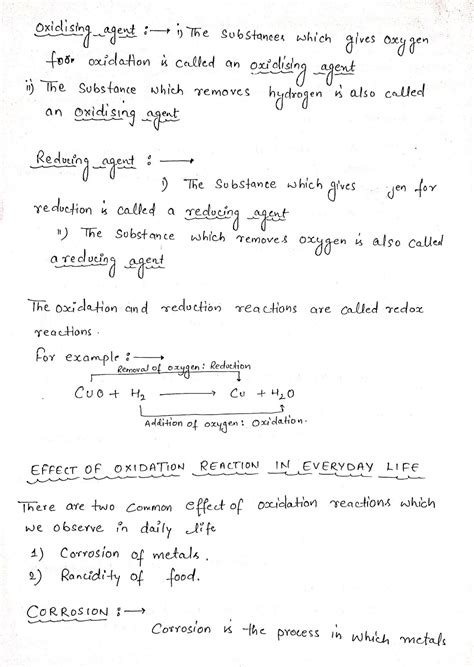 Oxidising agent :→ i) The Substances which gives oxygen
for oxidation is called an oxidising agent
ii) The Substance which removes hydrogen is also called
an oxidising agent
Reducing agent :→
i) The Substance which gives jen for
reduction is called a reducing agent
ii) The Substance which removes oxygen is also called
a reducing agent
The oxidation and reduction reactions are called redox
reactions.
For example :→
Removal of oxygen: Reduction
CuO + H₂ → Cu + H₂O
Addition of oxygen: Oxidation.
EFFECT OF OXIDATION REACTION IN EVERYDAY LIFE
There are two Common effect of oxidation reactions which
we observe in daily life
1) Corrosion of metals.
2) Rancidity of food.
CORROSION :→
Corrosion is the process in which metals